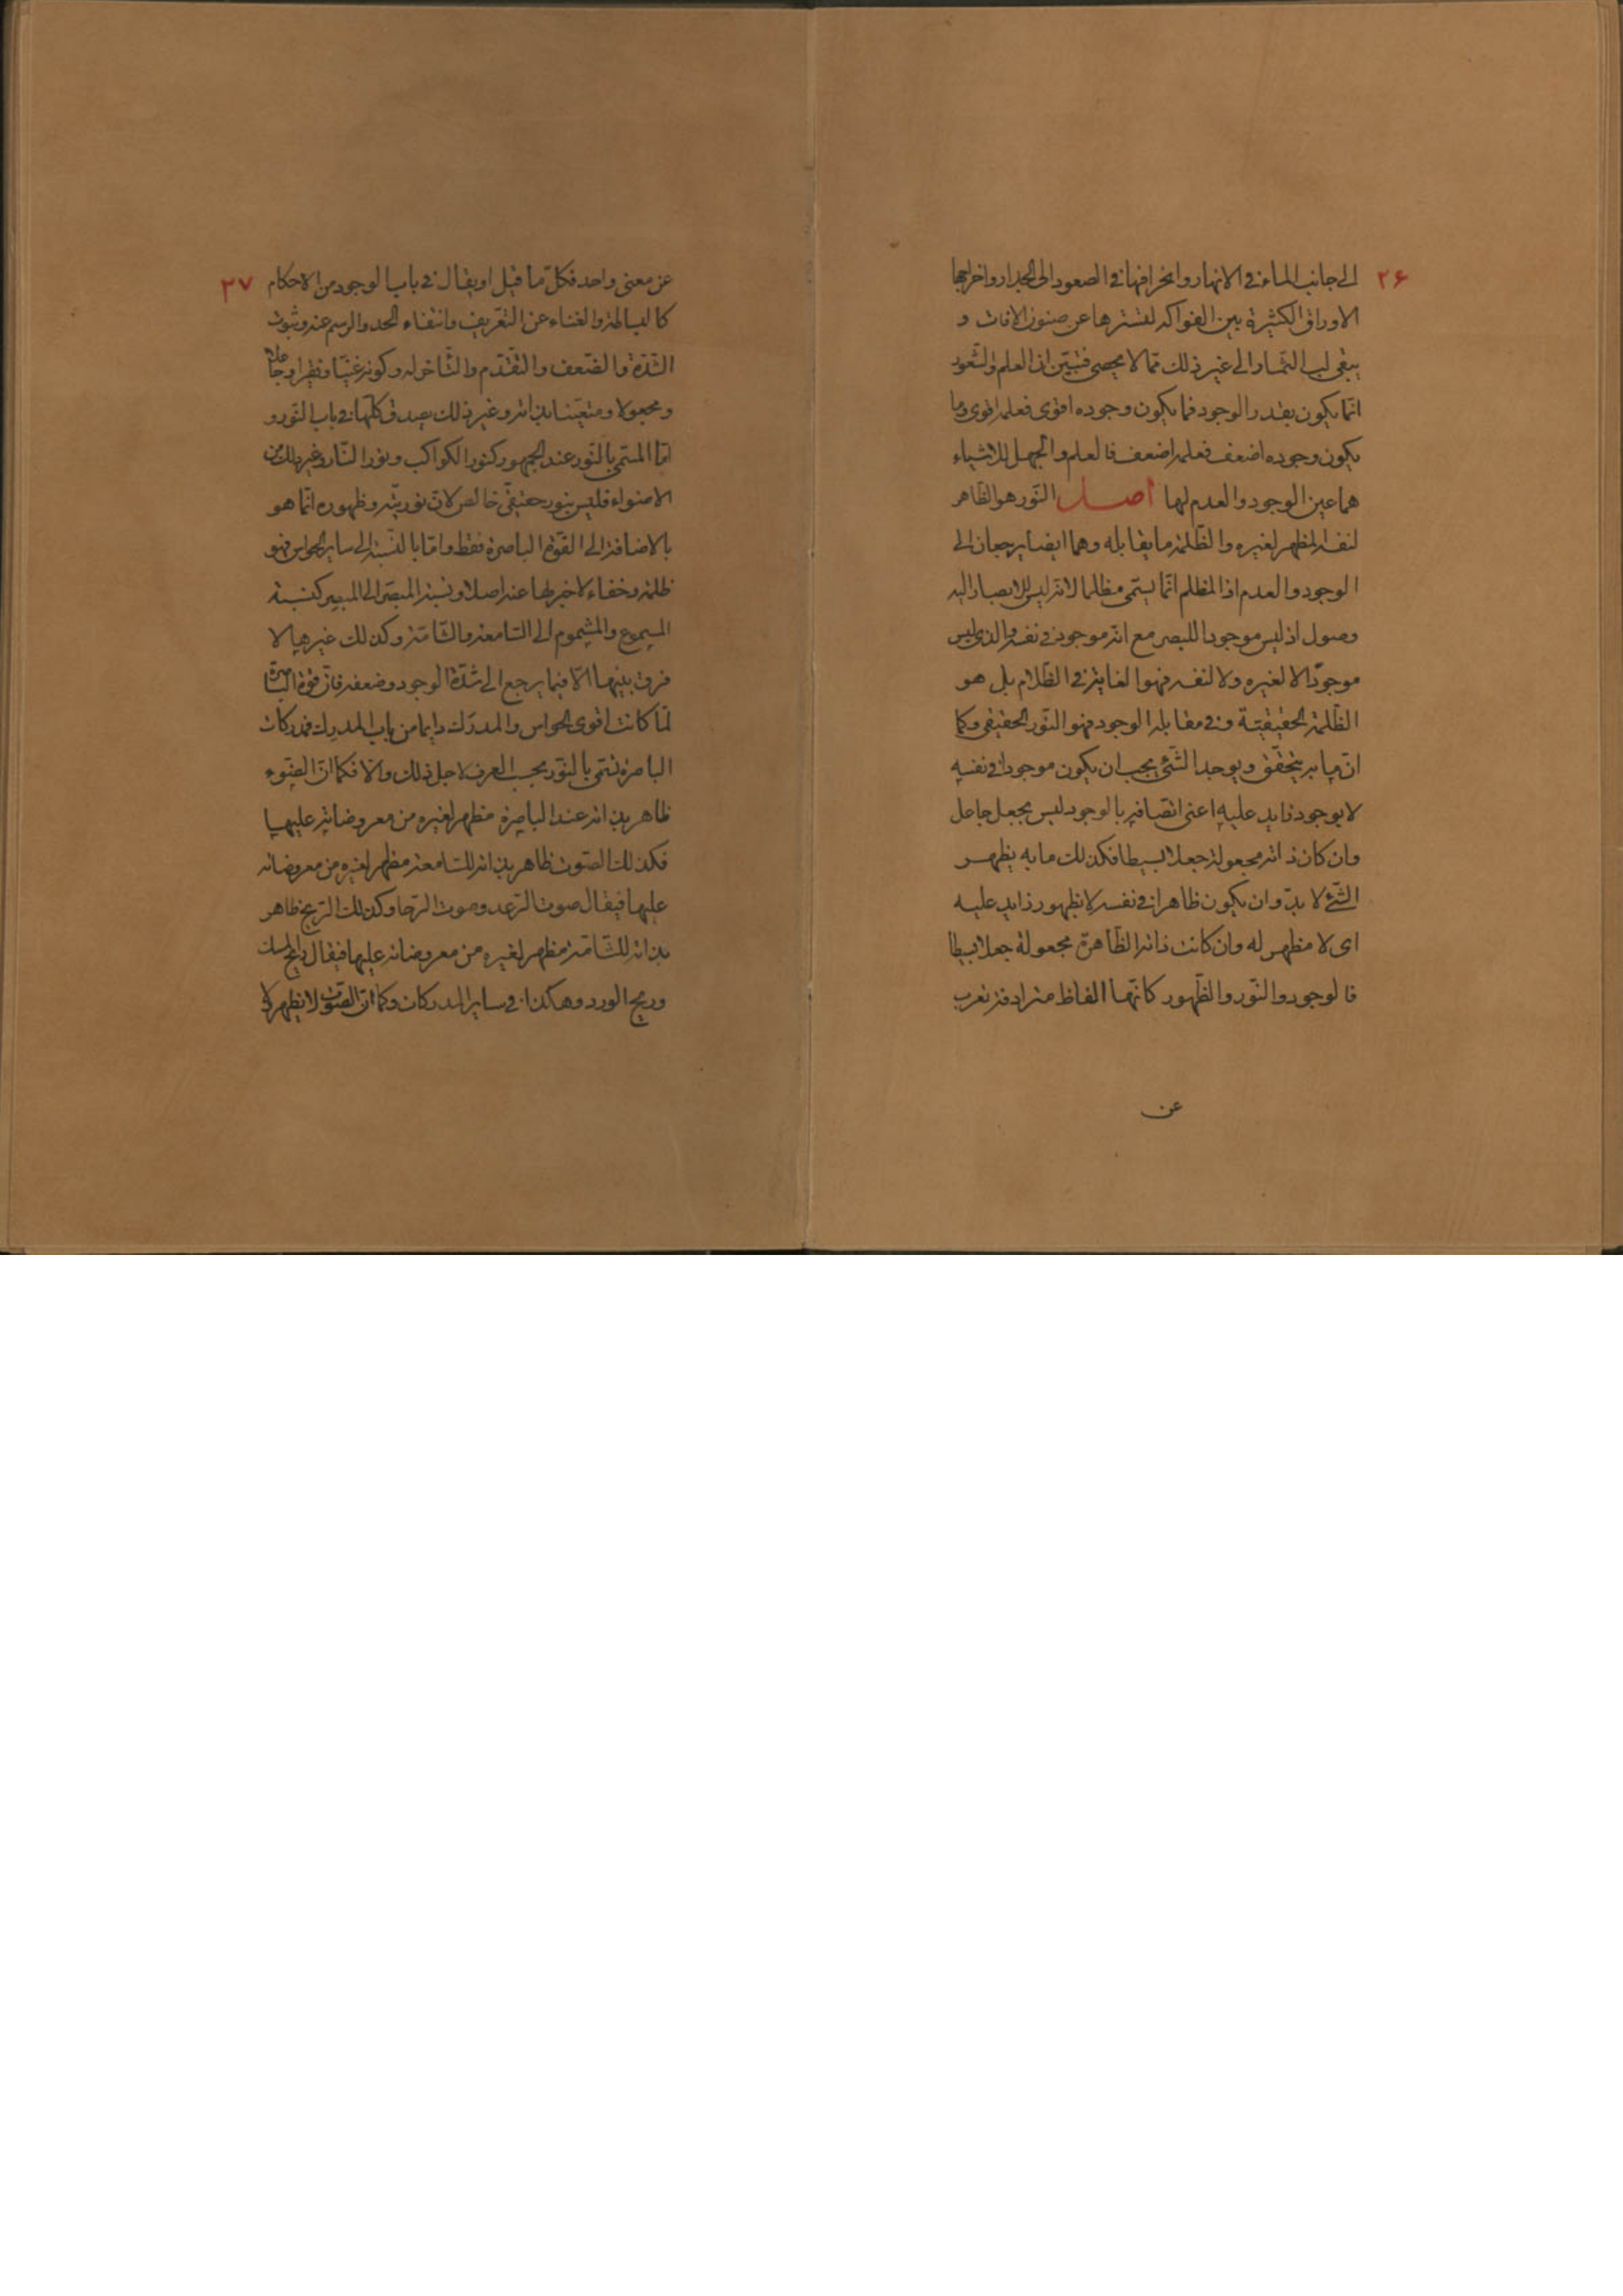 ٢۶
الى جانب الماء فى الانهار وانحرافها فى الصعود الى الجدار واخراجها
الاوراق الكثيرة بين الفواكه لتسترها عن صنوف الافات و
يبقى لب الثمار الى غير ذلك مما لا يحصى فتبين ان العلم والشعور
انّما يكون بقدر الوجود فما يكون وجوده اقوى فعلمه اقوى وما
يكون وجوده اضعف فعلمه اضعف فالعلم والجهل للاشياء
هما عين الوجود والعدم لها اصل النّور هو الظّاهر
لنفسه المظهر لغيره والظّلمة ما يقابله وهما ايضا يرجعان الى
الوجود والعدم اذ المظلم انّما يسمّى مظلما لانه ليس للابصار اليه
وصول اذ ليس موجودا للبصر مع انه موجود فى نفسه والذى ليس
موجودًا لا لغيره ولا لنفسه فهو الغاية فى الظّلام بل هو
الظّلمة الحقيقيّة وفى مقابله الوجود فهو النّور الحقيقى وكما
انّ ما به يتحقّق ويوجد الشّئ يجب ان يكون موجودا فى نفسه
لا بوجود زايد عليه اعنى اتصافه بالوجود ليس بجعل جاعل
وان كان ذاته مجعولة جعلا بسيطا فكذلك ما به يظهر
الشّئ لا بدّ وان يكون ظاهرا فى نفسه لا بظهور زايد عليه
اى لا مظهر له وان كانت ذاته الظّاهرة مجعولة جعلا بسيطا
فالوجود والنّور والظّهور كانّها الفاظ مترادفة تعرب
عن
٢٧
عن معنى واحد فكلّ ما قيل او يقال فى باب الوجود من الاحكام
كالبساطة والغناء عن التعريف وانتفاء الحد والرسم عنه وثبوت
الشّدّة والضّعف والتقدّم والتّأخر له وكونه غنيّا وفقيرا وجاعلا
ومجعولا ومتعيّنا بذاته وغير ذلك يصدق كلّها فى باب النّور و
امّا المسمّى بالنّور عند الجمهور كنور الكواكب ونور النّار وغير ذلك من
الاضواء فليس بنور حقيقى خالص لانّ نوريّته وظهوره انّما هو
بالاضافة الى القوّة الباصرة فقط وامّا بالنّسبة الى ساير الحواس فهو
ظلمة وخفاء لا خبر لها عنه اصلا ونسبة المبصر الى البصر كنسبة
المسموع والمشموم الى السّامعة والشّامّة وكذلك غيرها لا
فرق بينها الّا فيما يرجع الى شدّة الوجود وضعفه فانّ قوّة الباصرة
لمّا كانت اقوى الحواس والمدرَك دايما من باب المدرِك فمدركات
الباصرة تسمّى بالنّور بحسب العرف لاجل ذلك والّا فكما انّ الضّوء
ظاهر بذاته عند الباصرة مظهر لغيره من معروضاته عليها
فكذلك الصّوت ظاهر بذاته للسّامعة مظهر لغيره من معروضاته
عليها فيقال صوت الرّعد وصوت الرّحا وكذلك الرّيح ظاهر
بذاته للشّامّة مظهر لغيره من معروضاته عليها فيقال ريح المسك
وريح الورد وهكذا فى ساير المدركات وكما انّ الصّوت لا يظهر